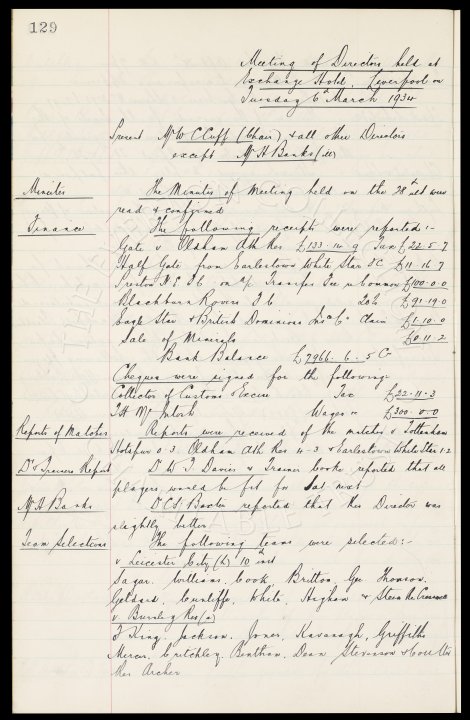 129
Meeting of Directors held at
Exchange Hotel, Liverpool on
Tuesday 6th March 1934
Present Mr W C Cuff (Chair) & all other Directors
except Mr A Banks (ill)
Minutes The Minutes of Meeting held on the 28th ult were
read & confirmed
Finance The following receipts were reported :-
Gate v Oldham Ath Res £133.14.9 Tax £22.5.7
Half Gate from Earlestown White Star FC £11.16.7
Preston N.E. Fc on a/c Transfer Fee £100.0.0
Blackburn Rovers Fc 20% £91.19.0
Eagle Star & British Dominions Ins Co Claim £1.10.0
Sale of Minerals £0.11.2
Bank Balance £7966.6.5 Cr
Cheques were signed for the following:-
Collector of Customs & Excise Tax £22.11.3
T H McIntosh Wages &c £300.0.0
Reports of Matches Reports were received of the matches v Tottenham
Hotspur 0.3. Oldham Ath Res 4-3 & Earlestown White Star 1-2
Dr & Trainers Report D W J Davies & Trainer Cooke reported that all
players would be fit for Sat next
Mr A Banks Dr C S Baxter reported that this Director was
slightly better
Team Selections The following teams were selected:-
v Leicester City (h) 10th inst
Sagar. Williams, Cook, Britton, Gee Thomson,
Geldard, Cunliffe, White, Higham & Stein Res Cresswell
v Burnley Res (a)
F King, Jackson, Jones, Kavanagh, Griffiths
Mercer, Critchley, Bentham, Dean Stevenson & Coulter
Res Archer